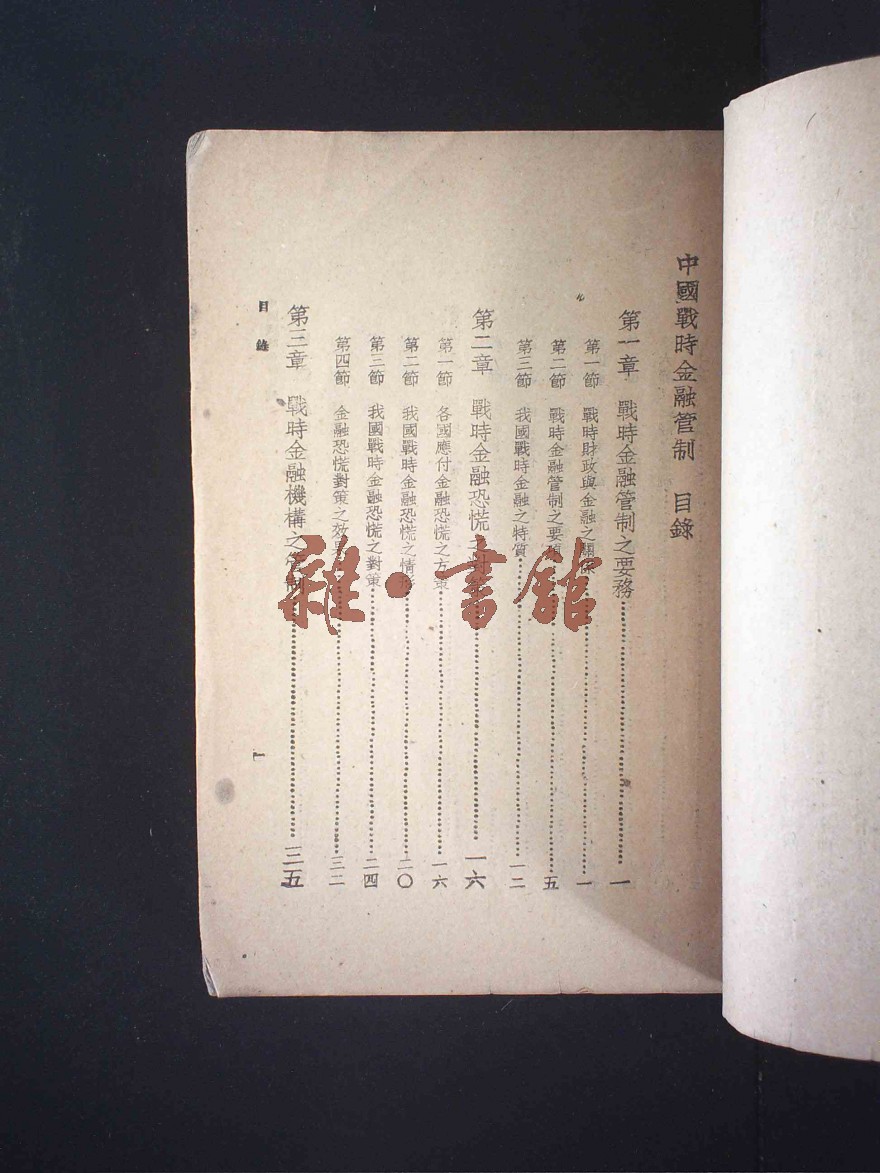 中國戰時金融管制 目錄
第一章 戰時金融管制之要務 一
第一節 戰時財政與金融之關係 一
第二節 戰時金融管制之要 五
第三節 我國戰時金融之特質 一二
第二章 戰時金融恐慌之對策 一六
第一節 各國應付金融恐慌之方策 一六
第二節 我國戰時金融恐慌之情形 二〇
第三節 我國戰時金融恐慌之對策 二四
第四節 金融恐慌對策之效 三二
第三章 戰時金融機構之管制 三五
目錄
一
雜·書館